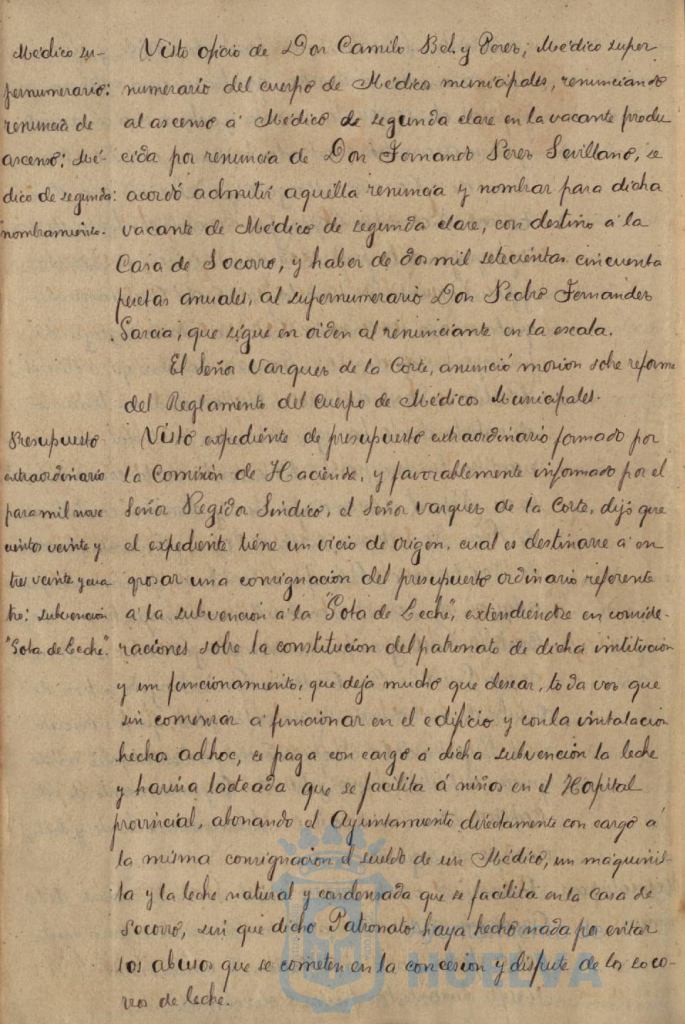 Médico su-
pernumerario:
renuncia de
ascenso: Mé-
dico de segunda:
nombramiento.
Visto oficio de Don Camilo Bel y Perez, Médico super
numerario del cuerpo de Médicos municipales, renunciando
al ascenso á Médico de segunda clase en la vacante produ
cida por renuncia de Don Fernando Perez Sevillano, se
acordó admitir aquella renuncia y nombrar para dicha
vacante de Médico de segunda clase, con destino á la
Casa de Socorro, y haber de dos mil setecientas cincuenta
pesetas anuales, al supernumerario Don Pedro Fernandez
Garcia, que sigue en orden al renunciante en la escala.
El Señor Vazquez de la Corte, anunció mocion sobre reforma
del Reglamento del cuerpo de Médicos Municipales.
Presupuesto
extraordinario
para mil nove
cientos veinte y
tres veinte y cua
tro: subvención
"Gota de Leche".
Visto expediente de presupuesto extraordinario formado por
la Comisión de Hacienda, y favorablemente informado por el
Señor Regidor Síndico, el Señor Vazquez de la Corte, dijo que
el expediente tiene un vicio de origen, cual es destinarse á en
grosar una consignación del presupuesto ordinario referente
á la subvención á la "Gota de Leche", extendiéndose en conside-
raciones sobre la constitución del patronato de dicha institución
y su funcionamiento, que deja mucho que desear, toda vez que
sin comenzar á funcionar en el edificio y con la instalación
hechos adhoc, se paga con cargo á dicha subvención la leche
y harina lacteada que se facilita á niños en el Hospital
provincial, abonando el Ayuntamiento directamente con cargo á
la misma consignación el sueldo de un Médico, un maquinis
ta y la leche natural y condensada que se facilita en la Casa de
Socorro, sin que dicho Patronato haya hecho nada por evitar
los abusos que se cometen en la concesión y disfrute de los soco-
rros de leche.
HUELVA